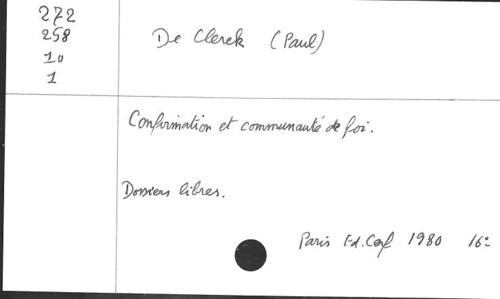 272
258
10
1
De Clerck (Paul)
Confirmation et communauté de foi.
Dossiers libres.
Paris Ed. Cerf 1980 16°